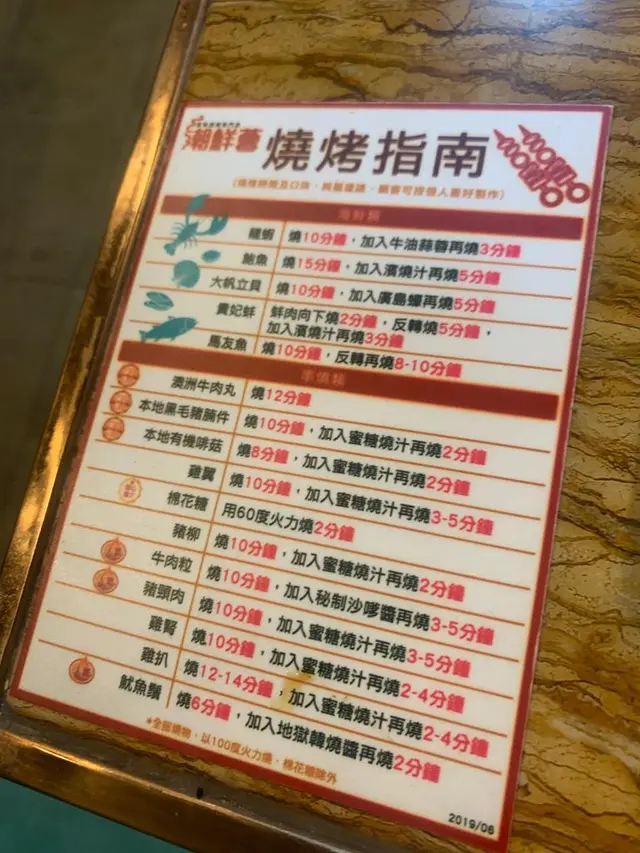 潮鮮薈
燒烤指南
(燒烤時間及口味，純屬建議，顧客可按個人喜好製作)
海鮮類
龍蝦 燒10分鐘，加入牛油蒜蓉再燒3分鐘
鮑魚 燒15分鐘，加入濱燒汁再燒5分鐘
大帆立貝 燒10分鐘，加入廣島蠔再燒5分鐘
貴妃蚌 鮮肉向下燒2分鐘，反轉燒5分鐘，
加入濱燒汁再燒3分鐘
馬友魚 燒10分鐘，反轉再燒8-10分鐘
串燒類
澳洲牛肉丸 燒12分鐘
本地黑毛豬腩件 燒10分鐘，加入蜜糖燒汁再燒2分鐘
本地有機啡菇 燒8分鐘，加入蜜糖燒汁再燒2分鐘
雞翼 燒10分鐘，加入蜜糖燒汁再燒3-5分鐘
棉花糖 用60度火力燒2分鐘
豬柳 燒10分鐘，加入蜜糖燒汁再燒2分鐘
牛肉粒 燒10分鐘，加入秘制沙嗲醬再燒3-5分鐘
豬頭肉 燒10分鐘，加入蜜糖燒汁再燒3-5分鐘
雞腎 燒10分鐘，加入蜜糖燒汁再燒2-4分鐘
雞扒 燒12-14分鐘，加入蜜糖燒汁再燒2-4分鐘
魷魚鬚 燒6分鐘，加入地獄韓燒醬再燒2分鐘
*全部燒物，以100度火力燒，棉花糖除外
2019/06